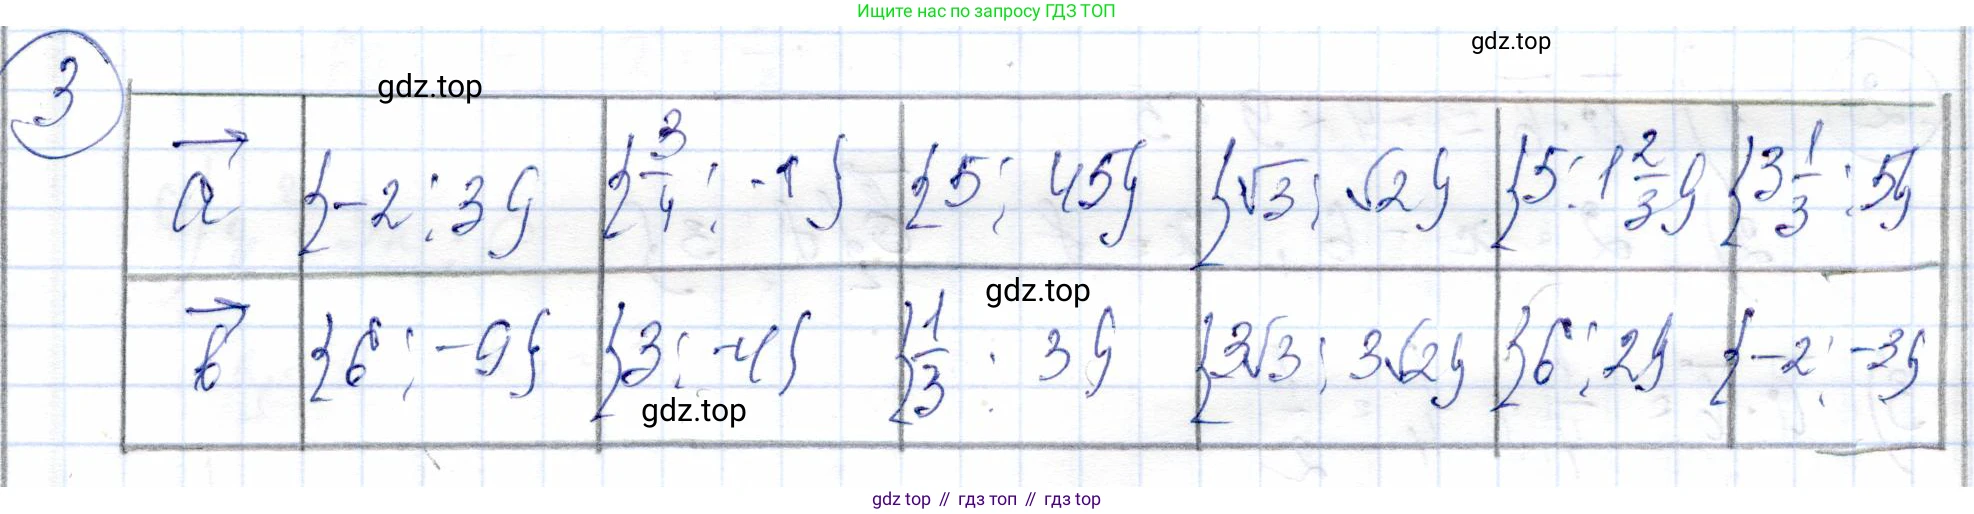 Ищите нас по запросу ГДЗ ТОП
gdz.top
3
gdz.top
a⃗ {-2; 3} {3/4; -1} {5; 45} {√3; √2} {5; 1 2/3} {3 1/3; 5}
gdz.top
b⃗ {6; -9} {3; -4} {1/3; 3} {3√3; 3√2} {6; 2} {-2; -3}
gdz.top
gdz top // гдз топ // gdz top